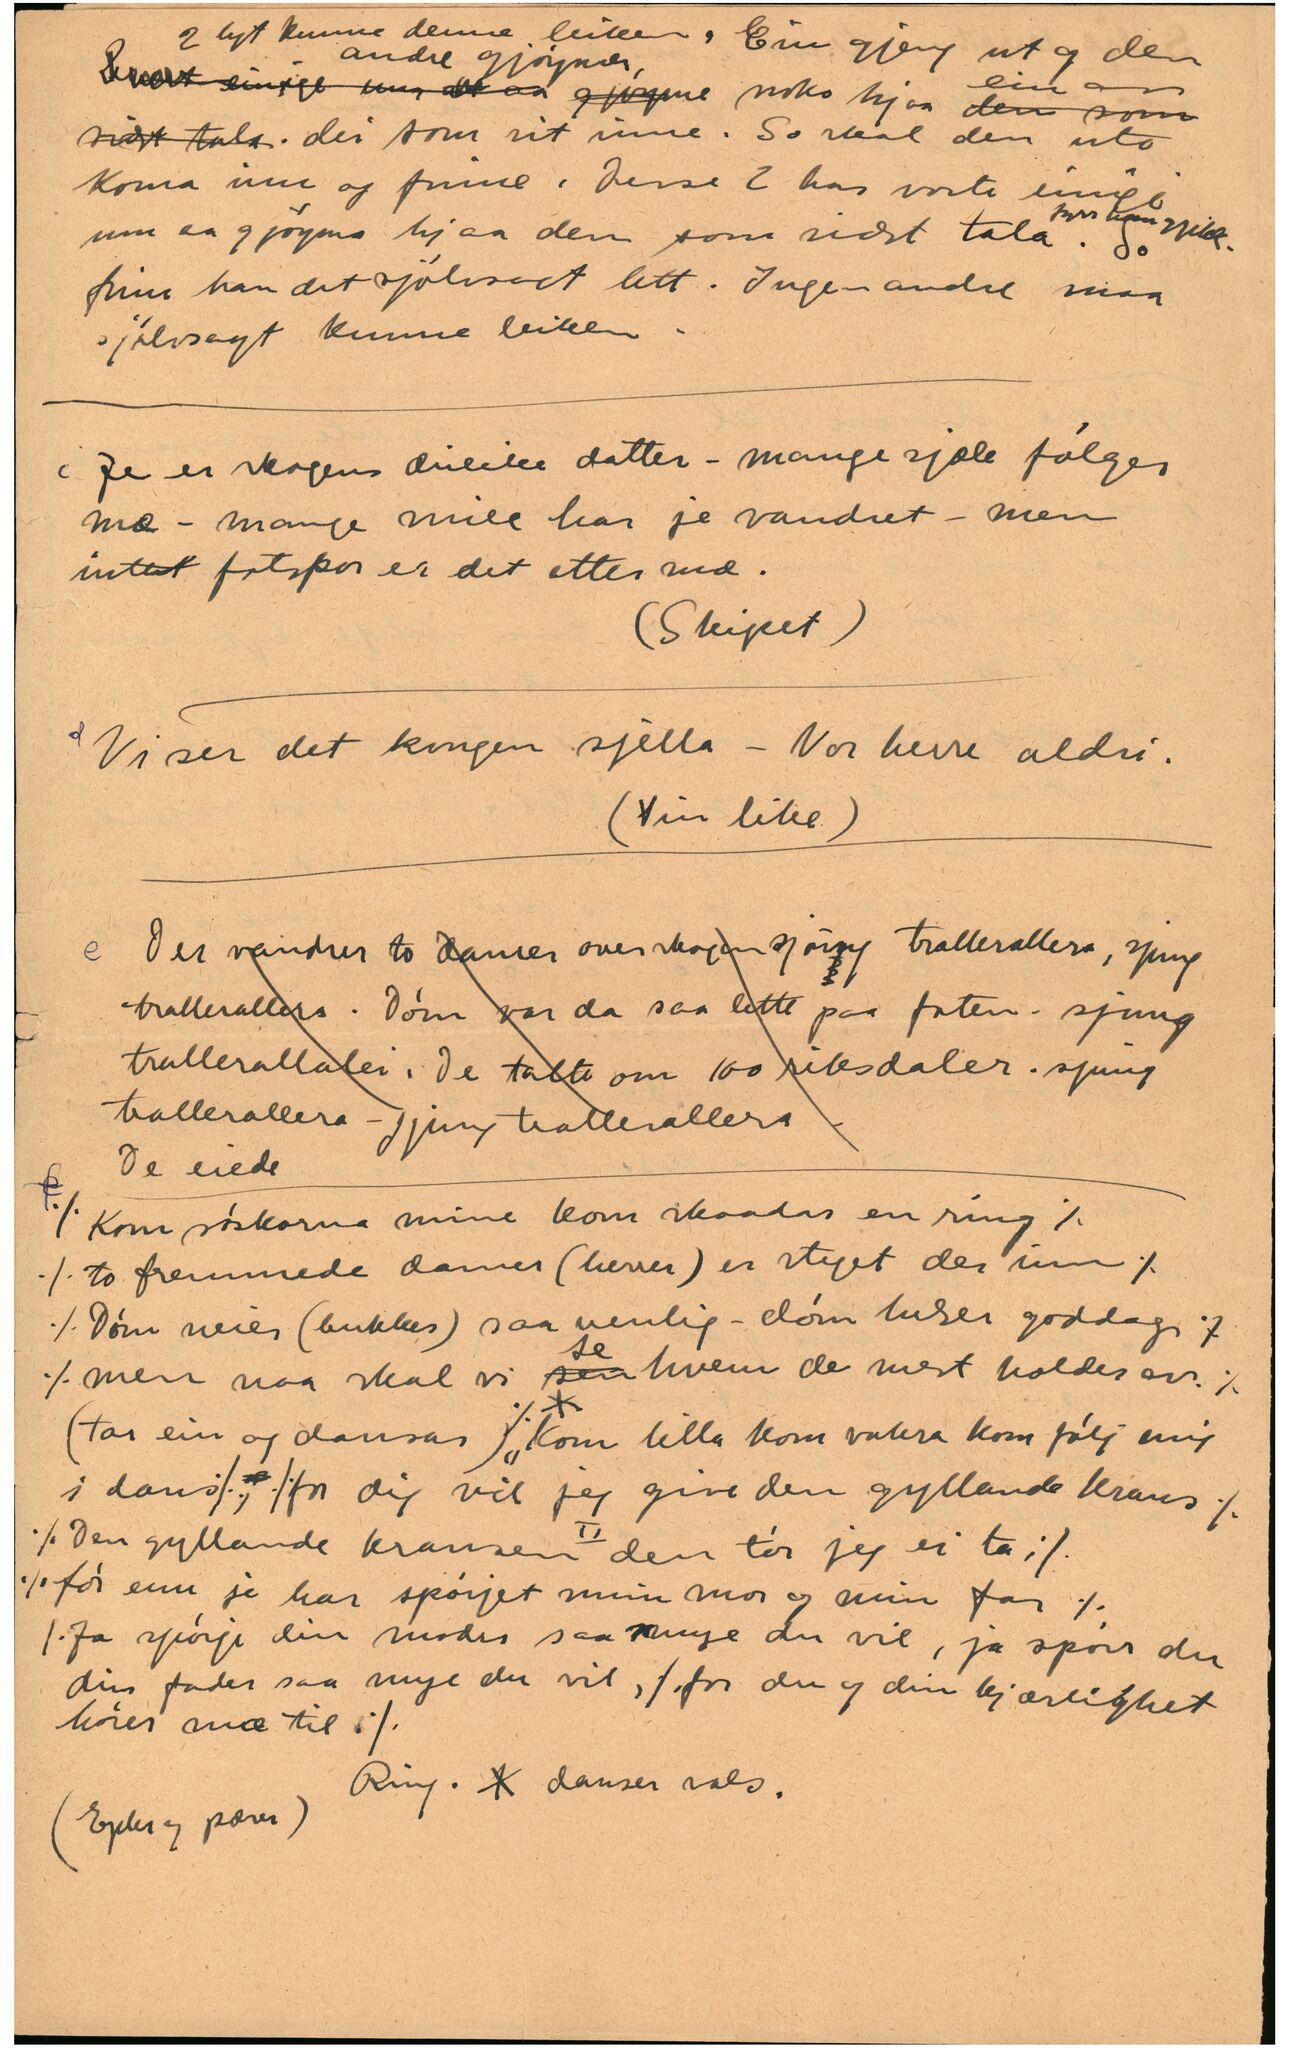 2 lyt kunne denne leiken. Ein gjeng ut og den
andre gjöymer,
2 vert einige um det aa gjöyme noko hjaa den som ein av
sidst tala. dei som sit inne. So skal den uto
koma inn og finne. Desse 2 har vorte einige
um aa gjöyma hjaa den som sidst tala fyrr han gjekk. So
finn han det sjölvsagt lett. Ingen andre maa
sjölvsagt kunne leiken.
c Je er skogens datter – mange sjæle fölger
mæ – mange mile har je vandret – men
intet fotspor er det etter mæ.
(Skipet)
d Vi ser det kongen sjella – Vor herre aldri.
(Sin like)
e Der vandrer to damer over skogen sjöng trallerallera, sjung
trallerallera. Döm var da saa lette paa foten – sjung
trallerallalei. De talte om 100 riksdaler. sjung
trallerallera – sjung trallerallera –
De eiede
f
·/. Kom söskorna mine kom skaadar en ring ·/.
·/. to fremmede damer (herrer) er steget der inn ·/.
·/. Döm neier (bukker) saa venlig – döm helser goddag ·/.
·/. men naa skal vi sen se hvem de mest holder av. ·/.
(tar ein og dansar) ·/. "Kom lilla kom vakra kom följ mig
i dans ·/. ·/. for dig vil jeg give den gyllande krans ·/.
·/. Den gyllande kransen II den tör jeg ei ta ·/.
·/. för enn je har spörjet min mor og min far ·/.
·/. Ja spörje din moder saa mye du vil, ja spörr du
din fader saa mye du vil, ·/. for du og din kjærlighet
hörer mæ til ·/.
Ring. * danser vals.
(Epler og pærer)